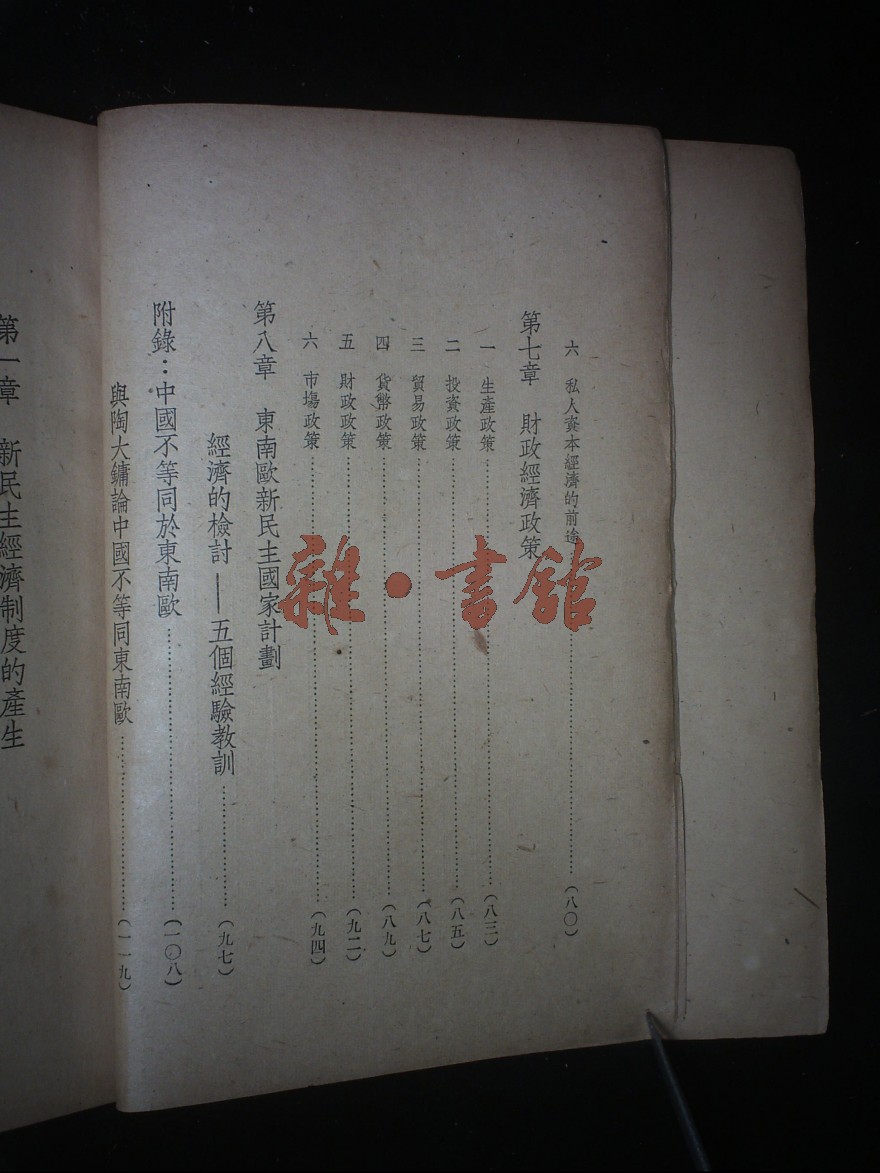 六　私人資本經濟的前途……（八〇）
第七章　財政經濟政策
一　生產政策……（八三）
二　投資政策……（八五）
三　貿易政策……（八七）
四　貨幣政策……（八九）
五　財政政策……（九二）
六　市場政策……（九四）
第八章　東南歐新民主國家計劃
經濟的檢討——五個經驗教訓……（九七）
附錄：中國不等同於東南歐……（一〇八）
與陶大鏞論中國不等同東南歐……（一一九）
第一章　新民主經濟制度的產生
雜·書館